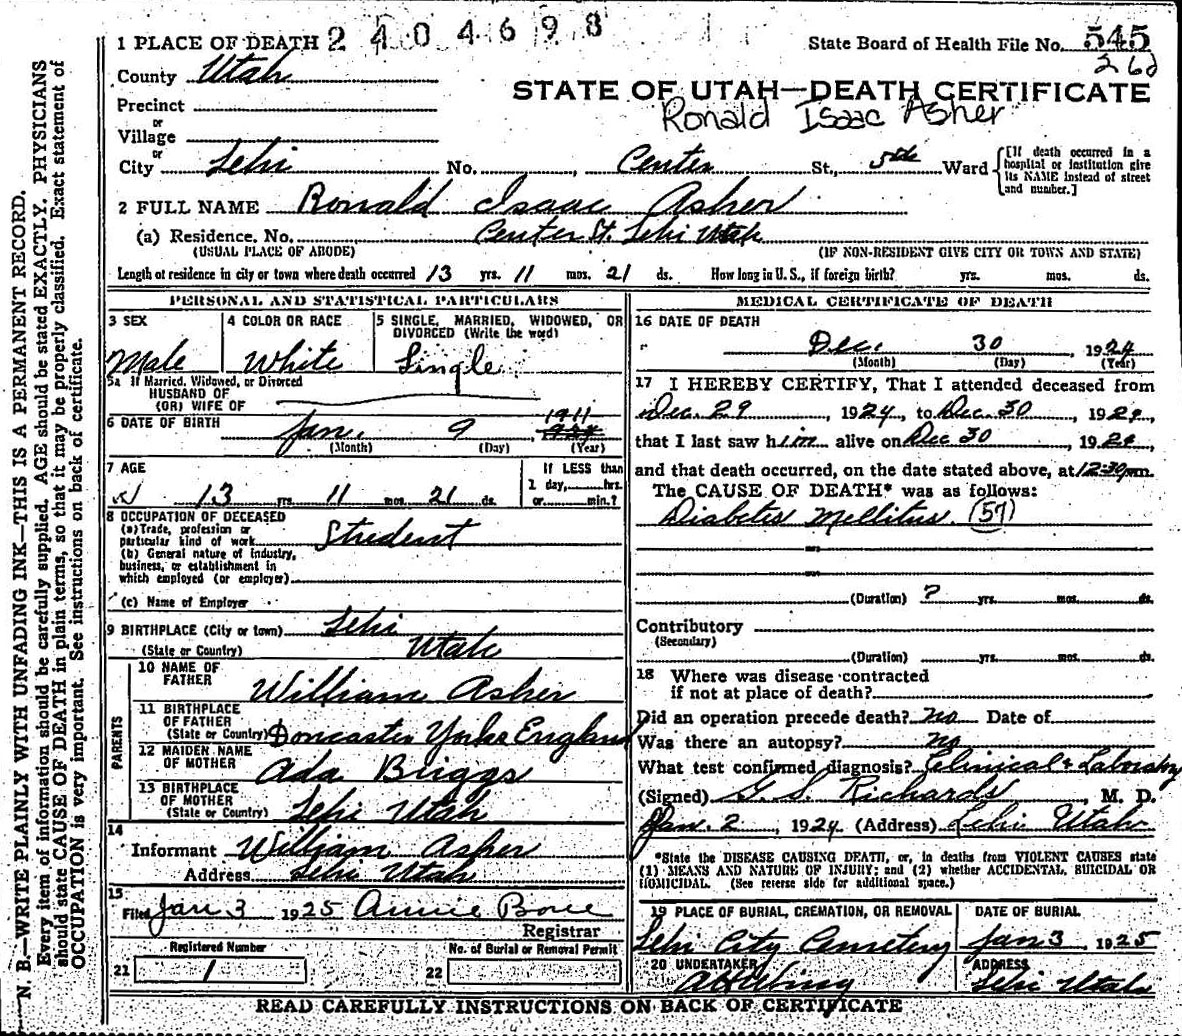 2404698
1 PLACE OF DEATH
State Board of Health File No. 545
262
County Utah
STATE OF UTAH—DEATH CERTIFICATE
Ronald Isaac Asher
Precinct
or
Village
or
City Lehi No. , Center St., 5th Ward
[If death occurred in a hospital or institution give its NAME instead of street and number.]
2 FULL NAME Ronald Isaac Asher
(a) Residence. No. Center St. Lehi Utah
(USUAL PLACE OF ABODE) (IF NON-RESIDENT GIVE CITY OR TOWN AND STATE)
Length of residence in city or town where death occurred 13 yrs. 11 mos. 21 ds. How long in U. S., if foreign birth? yrs. mos. ds.
PERSONAL AND STATISTICAL PARTICULARS
3 SEX
Male
4 COLOR OR RACE
White
5 SINGLE, MARRIED, WIDOWED, OR DIVORCED (Write the word)
Single
5a If Married, Widowed, or Divorced
HUSBAND OF
(OR) WIFE OF
6 DATE OF BIRTH Jan. 9, 1911
(Month) (Day) (Year)
7 AGE
13 yrs. 11 mos. 21 ds.
If LESS than
1 day, hrs.
or min.?
8 OCCUPATION OF DECEASED
(a) Trade, profession or
particular kind of work Student
(b) General nature of industry,
business, or establishment in
which employed (or employer)
(c) Name of Employer
9 BIRTHPLACE (City or town) Lehi
(State or Country) Utah
PARENTS
10 NAME OF
FATHER William Asher
11 BIRTHPLACE
OF FATHER
(State or Country) Doncaster Yorks England
12 MAIDEN NAME
OF MOTHER Ada Briggs
13 BIRTHPLACE
OF MOTHER
(State or Country) Lehi Utah
14
Informant William Asher
Address Lehi Utah
15
Filed Jan 3 1925 Annie
Registrar
Registered Number
21 1
No. of Burial or Removal Permit
22
MEDICAL CERTIFICATE OF DEATH
16 DATE OF DEATH
Dec. 30, 1924
(Month) (Day) (Year)
17 I HEREBY CERTIFY, That I attended deceased from
Dec. 29, 1924, to Dec. 30, 192
that I last saw him alive on Dec 30, 192
and that death occurred, on the date stated above, at 12:30 pm.
The CAUSE OF DEATH* was as follows:
Diabetes Mellitus. (57)
(Duration) ? yrs. mos. ds.
Contributory
(Secondary)
(Duration) yrs. mos. ds.
18 Where was disease contracted
if not at place of death?
Did an operation precede death? no Date of
Was there an autopsy? no
What test confirmed diagnosis? Clinical & Laboratory
(Signed) G. S. Richards, M. D.
Jan. 2, 1924 (Address) Lehi Utah
*State the DISEASE CAUSING DEATH, or, in deaths from VIOLENT CAUSES state
(1) MEANS AND NATURE OF INJURY; and (2) whether ACCIDENTAL, SUICIDAL OR
HOMICIDAL. (See reverse side for additional space.)
19 PLACE OF BURIAL, CREMATION, OR REMOVAL
Lehi City Cemetery
DATE OF BURIAL
Jan 3, 1925
20 UNDERTAKER
ADDRESS
Lehi Utah
READ CAREFULLY INSTRUCTIONS ON BACK OF CERTIFICATE
N. B.—WRITE PLAINLY WITH UNFADING INK—THIS IS A PERMANENT RECORD.
Every item of information should be carefully supplied. AGE should be stated EXACTLY. PHYSICIANS
should state CAUSE OF DEATH in plain terms, so that it may be properly classified. Exact statement of
OCCUPATION is very important. See instructions on back of certificate.